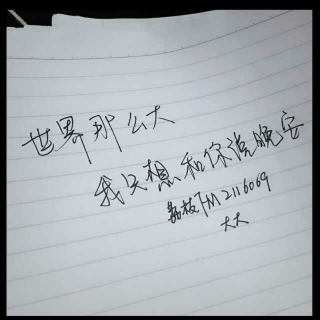 世界那么大
我只想和你说晚安
荔枝FM2116069
大大